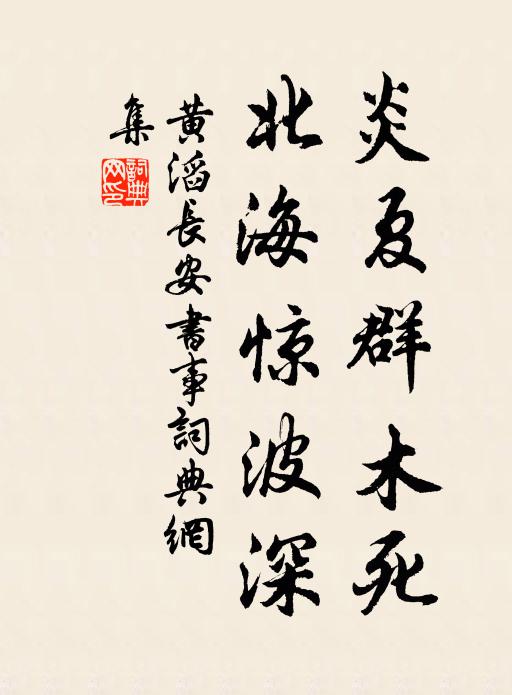 炎夏群木死
北海惊波深
黄滔長安書事詞典網
集
詞典
网印